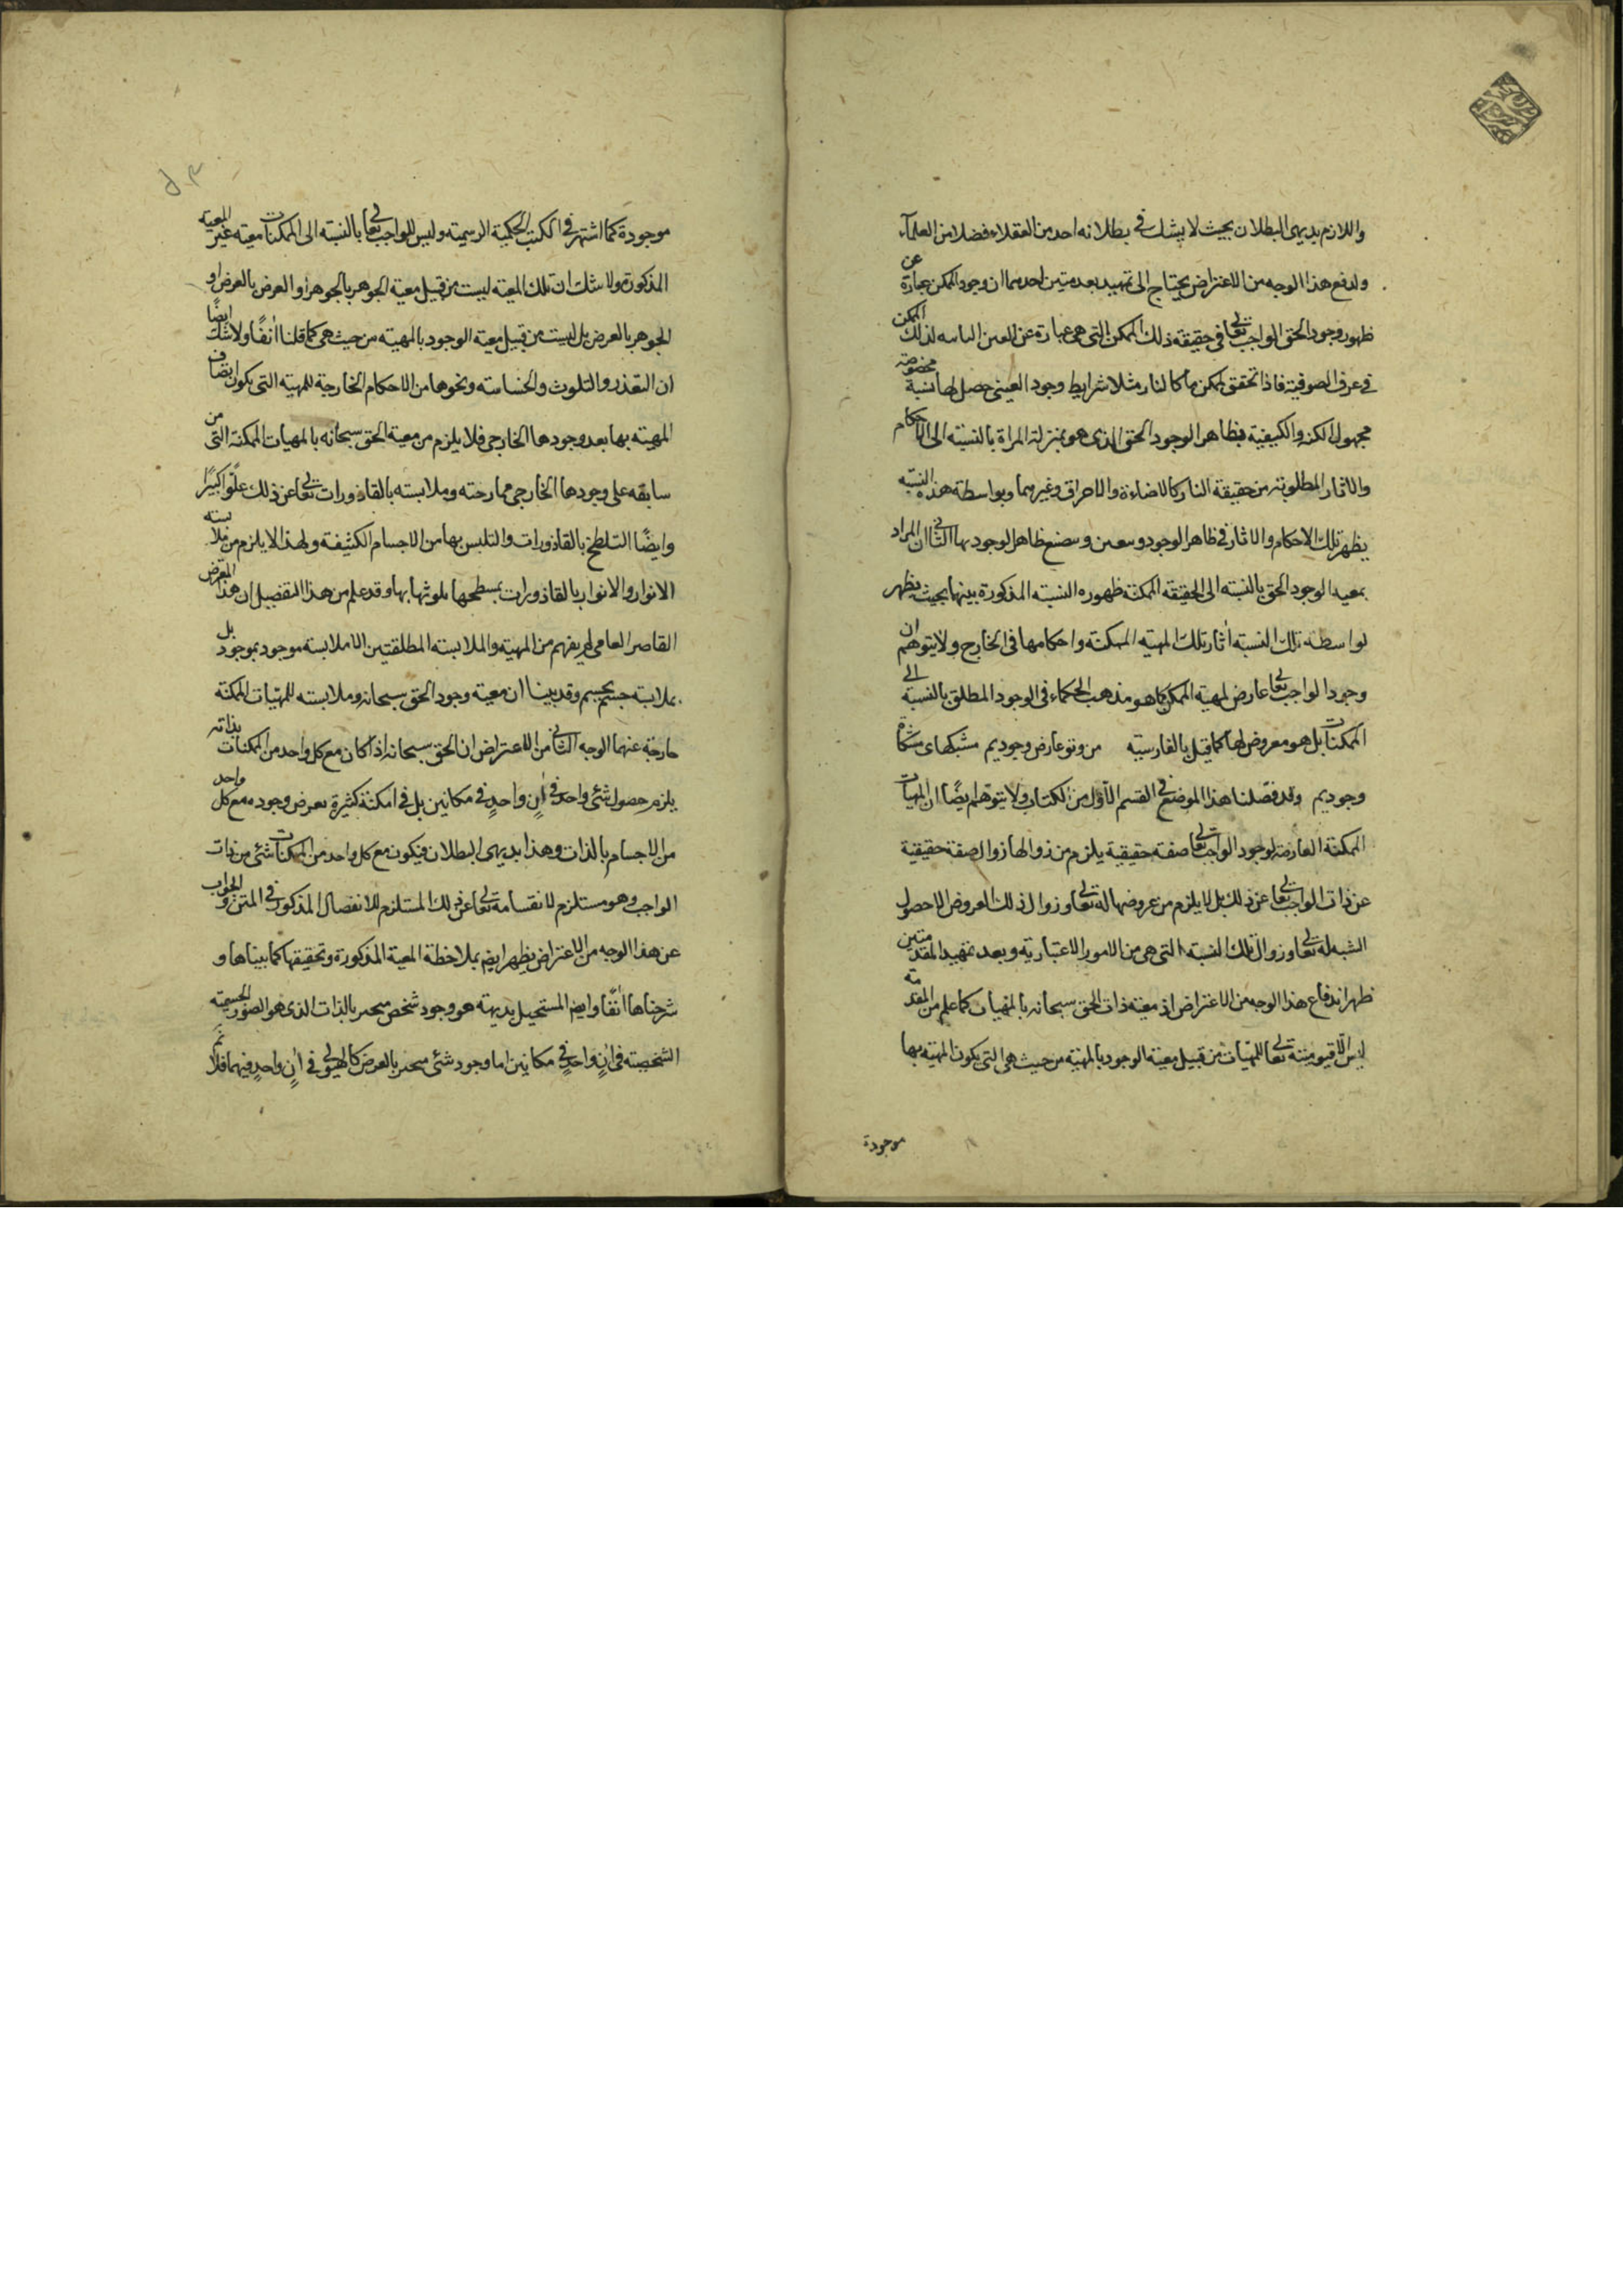 واللازم بديهى البطلان بحيث لا يشك فى بطلانه احد من العقلاء فضلا من العلماء
ولدفع هذا الوجه من الاعتراض يحتاج الى تمهيد مقدمتين احديهما ان وجود الممكن عبارة عن
ظهور وجود الحق الواجب تعالى فى حقيقة ذلك الممكن التى هى عبارة عن العين لذلك الممكن
فى عرف الصوفية فاذا تحقق لممكن ما كالنار مثلا شرايط وجود العينى حصل لها نسبة مخصوصة
مجهول الكنه والكيفية بظاهر الوجود الحق الذى هو بمنزلة المراة بالنسبة الى الاحكام
والاثار المطلوبة من حقيقة النار كالاضاءة والاحراق وغيرهما وبواسطة هذه النسبة
يظهر تلك الاحكام والاثار فى ظاهر الوجود وظاهر الوجود بها الثانى ان المراد
بمعية الوجود الحق بالنسبة الى الحقيقة الممكنة ظهوره النسبة المذكورة بينها بحيث يظهر
بواسطة تلك النسبة اثار تلك المهية الممكنة واحكامها فى الخارج ولا يتوهم ان
وجود الواجب تعالى عارض لمهية الممكن كما هو مذهب الحكماء فى الوجود المطلق بالنسبة الى
الممكنات بل هو معروض لها كما قيل بالفارسية من وتو عارض وجوديم مشبكهاى مشكاة
وجوديم وقد فصلنا هذا الموضع فى القسم الاول من الكتاب ولا يتوهم ايضًا ان المهيات
الممكنة العارضة لوجود الواجب تعالى صفة حقيقية يلزم من زوالها زوال صفة حقيقية
عن ذات الواجب تعالى عن ذلك بل لا يلزم من عروضها له تعالى وزوال ذلك العروض الا حصول
النسبة له تعالى وزوال تلك النسبة التى هى من الامور الاعتبارية وبعد تمهيد المقدمتين
ظهر اندفاع هذا الوجه من الاعتراض اذ معية ذات الحق سبحانه بالمهيات كما علم من المقدمة
ليس قيومية تعالى للمهيات من قبيل معية الوجود بالمهية من حيث هى التى يكون المهية بها
موجودة
موجودة كما اشتهر فى الكتب الحكمية الرسمية وليس للواجب تعالى بالنسبة الى الممكنات معية غير المعية
المذكورة ولا شك ان تلك المعية ليست من قبيل معية الجوهر بالجوهر او العرض بالعرض او
الجوهر بالعرض بل ليست من قبيل معية الوجود بالمهية من حيث هى كما قلنا انفًا ولا شك ايضًا
ان التقذر والتلوث والخساسة ونحوها من الاحكام الخارجة للمهية التى يكون اتصاف
المهية بها بعد وجودها الخارجى فلا يلزم من معية الحق سبحانه بالمهيات الممكنة التى من
سابقة على وجودها الخارجى ممازجته وملابسته بالقاذورات تعالى عن ذلك علوًا كبيرًا
وايضًا التلطخ بالقاذورات والتلبس بها من الاجسام الكثيفة ولهذا لا يلزم من ملابسته
الانوار والانوار بالقاذورات تلوثها بها وقد علم من هذا التفصيل ان هذا المعترض
القاصر العامى لم يفهم من المهية والملابسة المطلقتين الا ملابسة موجود بموجود بل
بملابسة جسم بجسم وقد بينا ان معية وجود الحق سبحانه وملابسته للمهيات الممكنة
خارجة عنهما الوجه الثانى من الاعتراض ان الحق سبحانه اذا كان مع كل واحد من الممكنات بذاته
يلزم حصول شئ واحد فى انٍ واحدٍ فى مكانين بل فى امكنة كثيرة بعرض وجوده مع كل واحد
من الاجسام بالذات وهذا بديهى البطلان فيكون مع كل واحد من الممكنات شئ من ذات
الواجب وهو مستلزم لانقسامه تعالى عن ذلك المستلزم للانفصال المذكور فى المتن والجواب
عن هذا الوجه من الاعتراض يظهر ايضم بملاحظة المعية المذكورة وتحقيقها كما بيناها و
شرحناها انفًا وايضم المستحيل بديهة هو وجود شخص متحيز بالذات الذى هو الصور الجسمية
الشخصية فى انٍ واحدٍ فى مكانين اما وجود شئ متحيز بالعرض كالهيولى فى انٍ واحدٍ فيهما فلا ثم